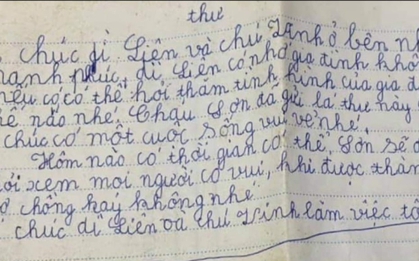 thư
chúc dì Liên và chú Vinh ở bên nh
hạnh phúc, dì Liên có nhớ gia đình khô
nếu có có thể hỏi thăm tình hình của gia đ
hế nào nhé. Cháu Sơn đã gửi lá thư này
chúc có một cuộc sống vui vẻ nhé.
Hôm nào có thời gian có thể Sơn sẽ đ
ới xem mọi người có vui, khi được thàn
ợ chồng hay không nhé
chúc dì Liên và chú Vinh làm việc tố